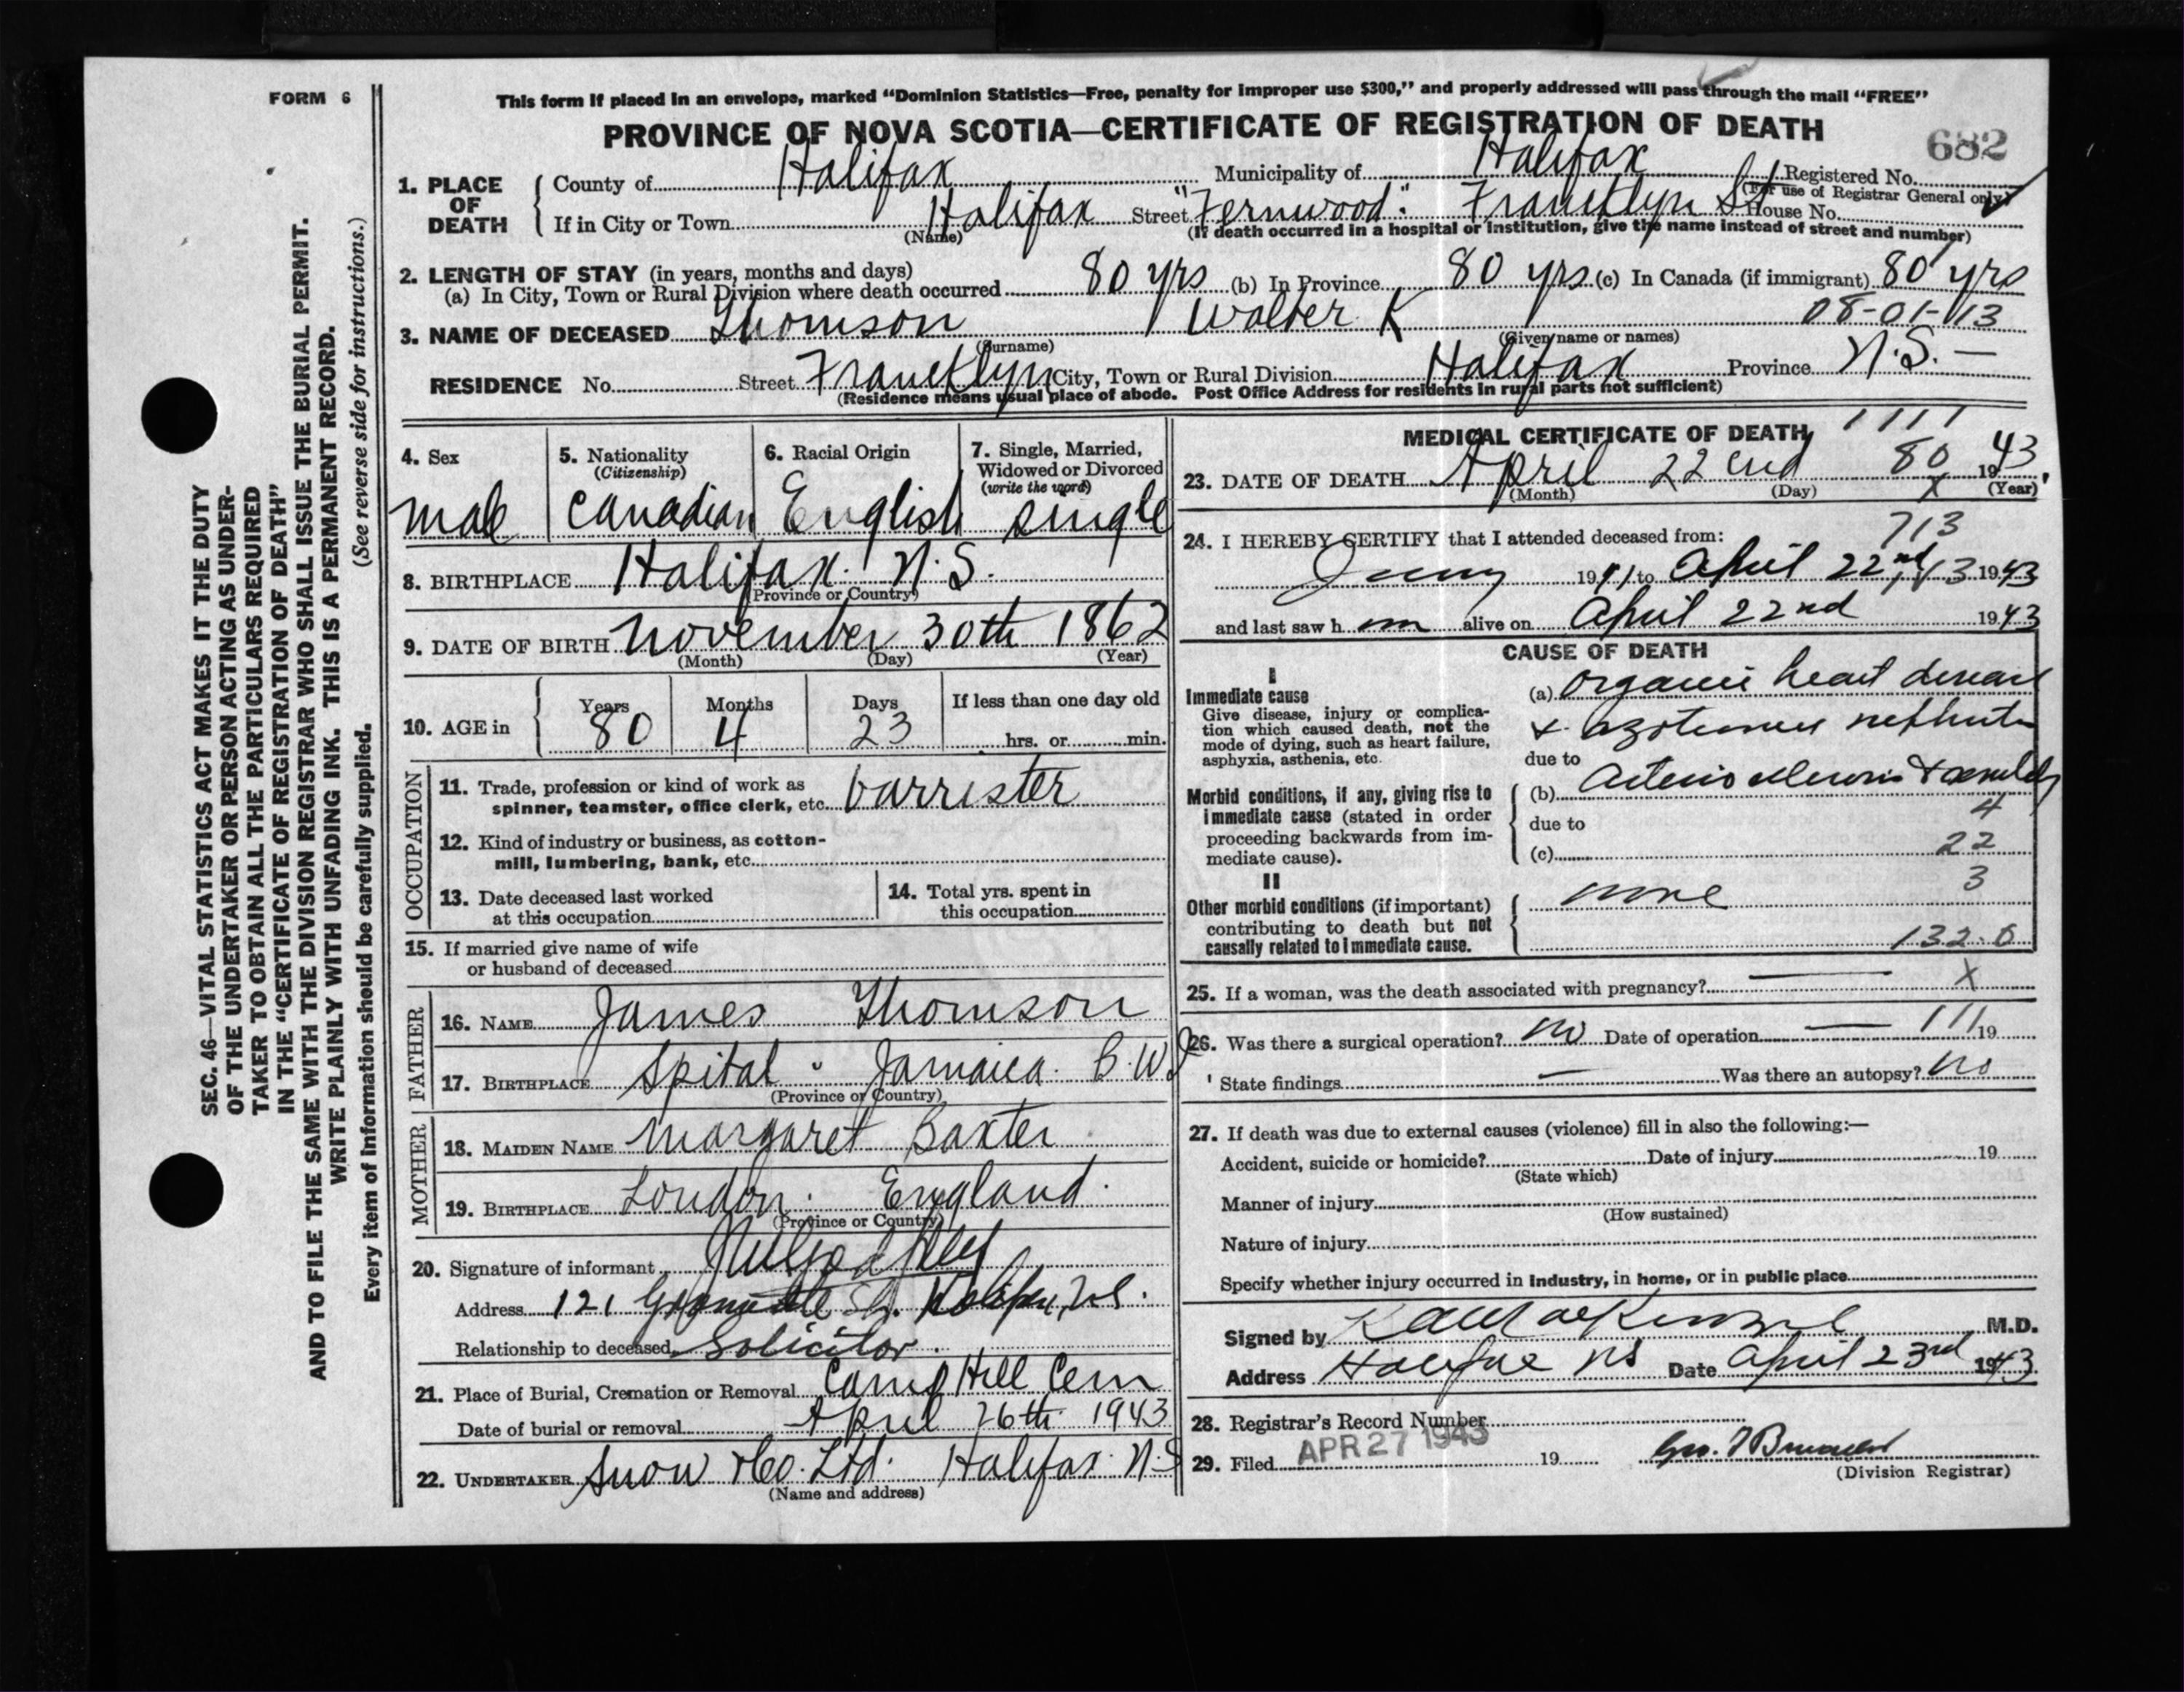 FORM 6
This form if placed in an envelope, marked “Dominion Statistics—Free, penalty for improper use $300,” and properly addressed will pass through the mail “FREE”
PROVINCE OF NOVA SCOTIA—CERTIFICATE OF REGISTRATION OF DEATH
682
1. PLACE OF DEATH
County of Halifax Municipality of Halifax Registered No.
(For use of Registrar General only)
If in City or Town Halifax Street "Fernwood". Francklyn St House No.
(Name) (If death occurred in a hospital or institution, give the name instead of street and number)
2. LENGTH OF STAY (in years, months and days)
(a) In City, Town or Rural Division where death occurred 80 yrs (b) In Province 80 yrs (c) In Canada (if immigrant) 80 yrs
08-01-113
3. NAME OF DECEASED Thomson Walter K
(Surname) (Given name or names)
RESIDENCE No. Street Francklyn City, Town or Rural Division Halifax Province N.S. —
(Residence means usual place of abode. Post Office Address for residents in rural parts not sufficient)
4. Sex
male
5. Nationality
(Citizenship)
Canadian
6. Racial Origin
English
7. Single, Married,
Widowed or Divorced
(write the word)
single
8. BIRTHPLACE Halifax. N.S.
(Province or Country)
9. DATE OF BIRTH November 30th 1862
(Month) (Day) (Year)
10. AGE in
Years Months Days If less than one day old
80 4 23 hrs. or min.
OCCUPATION
11. Trade, profession or kind of work as
spinner, teamster, office clerk, etc. barrister
12. Kind of industry or business, as cotton-
mill, lumbering, bank, etc.
13. Date deceased last worked
at this occupation
14. Total yrs. spent in
this occupation
15. If married give name of wife
or husband of deceased
FATHER
16. NAME James Thomson
17. BIRTHPLACE Spital Jamaica. B.W.I
(Province or Country)
MOTHER
18. MAIDEN NAME Margaret Baxter
19. BIRTHPLACE London. England.
(Province or Country)
20. Signature of informant
Address 121 St. Halifax, N.S.
Relationship to deceased Solicitor.
21. Place of Burial, Cremation or Removal Camp Hill Cem
Date of burial or removal April 26th 1943
22. UNDERTAKER Snow & Co. Ltd. Halifax. N.S
(Name and address)
MEDICAL CERTIFICATE OF DEATH
1111
23. DATE OF DEATH April 22end 80 1943.
(Month) (Day) x (Year)
713
24. I HEREBY CERTIFY that I attended deceased from:
1941 to April 22nd 1943
and last saw h im alive on April 22nd 1943
CAUSE OF DEATH
I
Immediate cause
Give disease, injury or complica-
tion which caused death, not the
mode of dying, such as heart failure,
asphyxia, asthenia, etc.
(a) Organic heart disease
due to
Morbid conditions, if any, giving rise to
immediate cause (stated in order
proceeding backwards from im-
mediate cause).
(b)
4
due to
(c) 22
II
3
Other morbid conditions (if important)
contributing to death but not
causally related to immediate cause.
none
132.0
25. If a woman, was the death associated with pregnancy? — x
26. Was there a surgical operation? no Date of operation — 111 19
State findings — Was there an autopsy? no
27. If death was due to external causes (violence) fill in also the following:—
Accident, suicide or homicide? Date of injury 19
(State which)
Manner of injury
(How sustained)
Nature of injury
Specify whether injury occurred in industry, in home, or in public place
Signed by MacKenzie M.D.
Address Halifax NS Date April 23rd 1943
28. Registrar's Record Number
29. Filed APR 27 1943 19
(Division Registrar)
SEC. 46—VITAL STATISTICS ACT MAKES IT THE DUTY
OF THE UNDERTAKER OR PERSON ACTING AS UNDER-
TAKER TO OBTAIN ALL THE PARTICULARS REQUIRED
IN THE “CERTIFICATE OF REGISTRATION OF DEATH”
AND TO FILE THE SAME WITH THE DIVISION REGISTRAR WHO SHALL ISSUE THE BURIAL PERMIT.
WRITE PLAINLY WITH UNFADING INK. THIS IS A PERMANENT RECORD.
Every item of information should be carefully supplied. (See reverse side for instructions.)